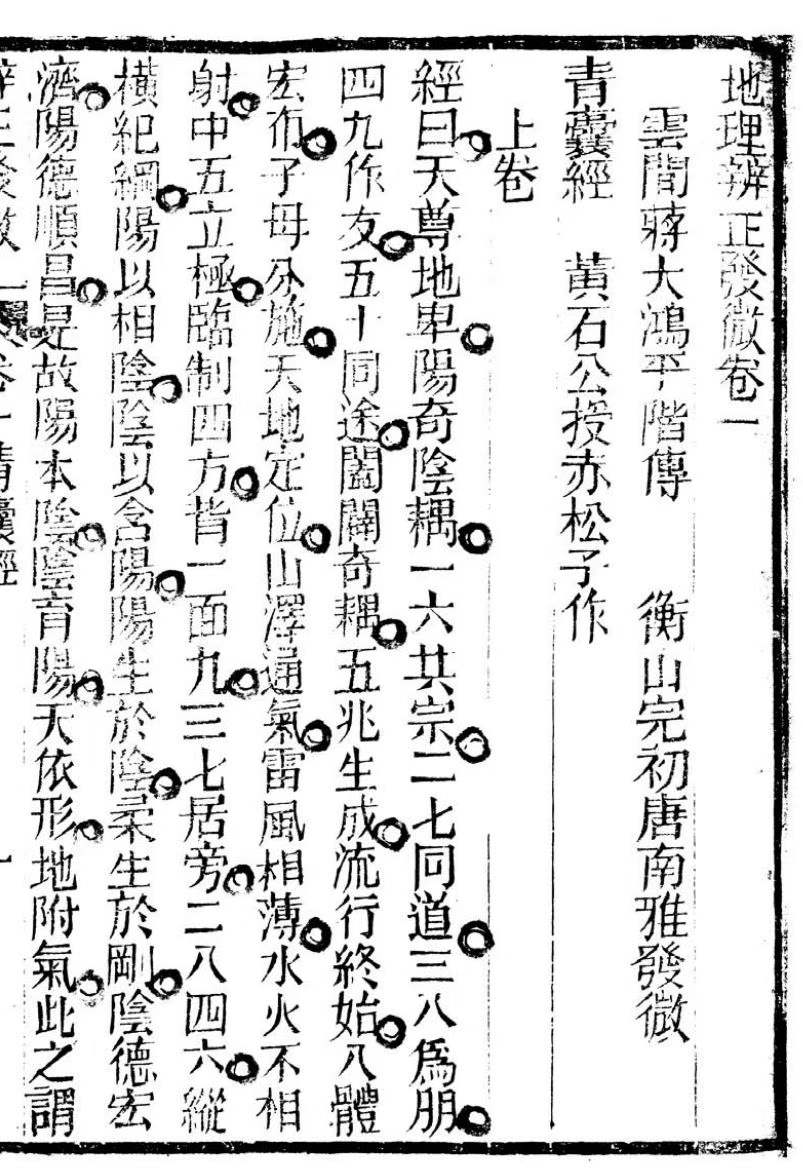 地理辨正發微卷一
雲間蔣大鴻平階傳 衡山完初唐南雅發微
青囊經 黃石公授赤松子作
上卷
經曰天尊地卑陽奇陰耦一六共宗二七同道三八爲朋
四九作友五十同途闔闢奇耦五兆生成流行終始八體
宏布子母分施天地定位山澤通氣雷風相薄水火不相
射中五立極臨制四方背一面九三七居旁二八四六縱
橫紀綱陽以相陰陰以含陽陽生於陰柔生於剛陰德宏
濟陽德順昌是故陽本陰陰育陽天依形地附氣此之謂
辨正發微 卷一青囊經 一